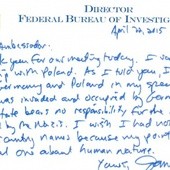 DIRECTOR
FEDERAL BUREAU OF INVESTIGA
April 22, 2015
mbassador:
k you for our meeting today. I
with Poland. As I told you, I
ermany and Poland in my speec
was invaded and occupied by Germ
tate bears no responsibility for the
by the Nazis. I wish I had not
country names because my point
al one about human nature.
Yours,